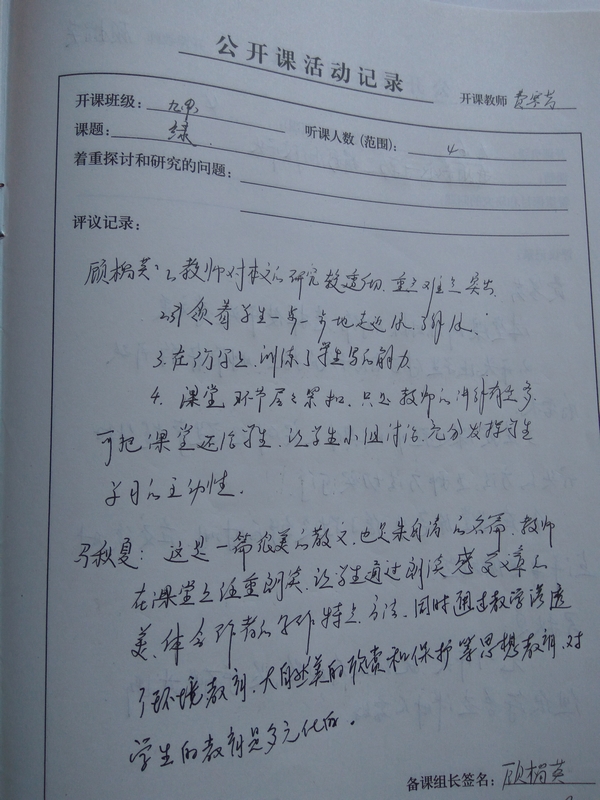 公开课活动记录
开课班级： 九甲 开课教师 费
课题： 绿 听课人数（范围）： 4
着重探讨和研究的问题：
评议记录：
顾楣英：1、教师对本文的研究较透彻，重点难点突出。
2、引领着学生一步一步地走近
3、在仿写上，训练了学生写的能力
4、课堂环节层层紧扣，只是教师的讲解有点多，
可把课堂还给学生，让学生小组讨论，充分发挥学生
学习的主动性。
马秋夏：这是一篇很美的散文，也是朱自清的名篇，教师
在课堂上注重朗读，让学生通过朗读感受文章的
美，体会作者的写作特点、方法，同时通过教学渗透
了环境教育、大自然美的欣赏和保护等思想教育，对
学生的教育是多元化的。
备课组长签名： 顾楣英